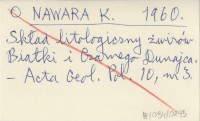 NAWARA K. 1960.
Skład litologiczny żwirów
Białki i Czarnego Dunajca.
- Acta Geol. Pol. 10, nr 3.